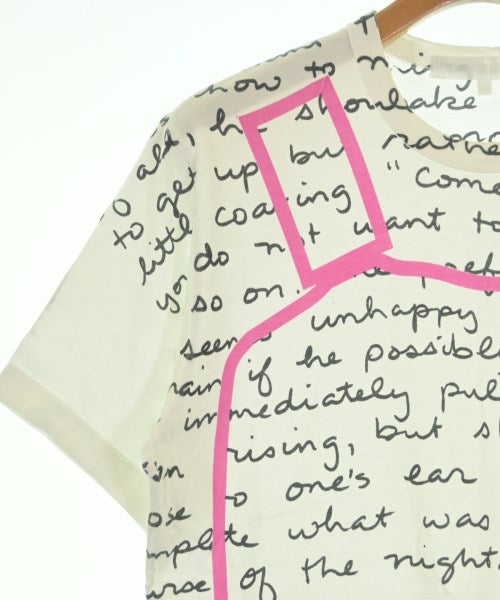 how to
to all, he shoulake
to get up but rathe
little coaxing "Come
you do not want to
so on. The pref
seems unhappy
main if he possible
immediately pul
rising, but s
one's ear
ose
mplete what was
urse of the night.